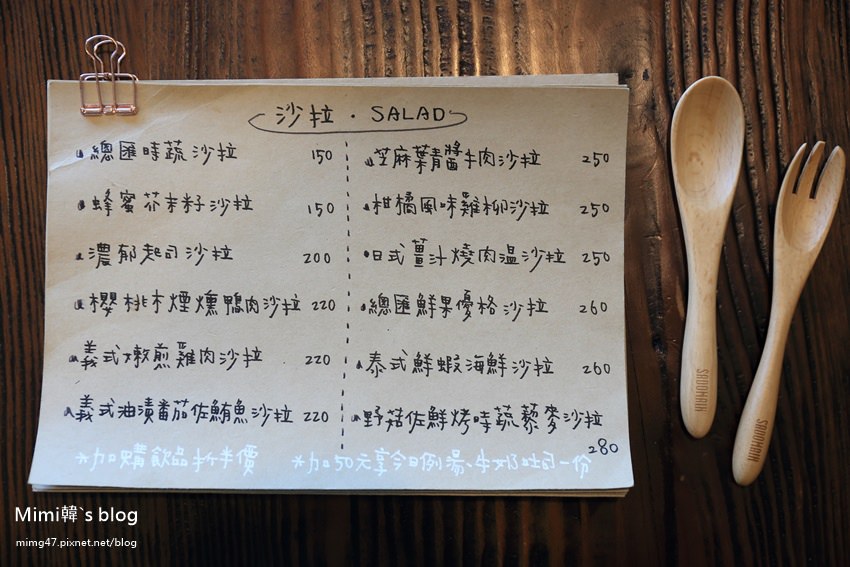 沙拉 · SALAD
總匯時蔬沙拉 150
蜂蜜芥末籽沙拉 150
濃郁起司沙拉 200
櫻桃木煙燻鴨肉沙拉 220
義式嫩煎雞肉沙拉 220
義式油漬番茄佐鮪魚沙拉 220
芝麻葉青醬牛肉沙拉 250
柑橘風味雞柳沙拉 250
日式薑汁燒肉溫沙拉 250
總匯鮮果優格沙拉 260
泰式鮮蝦海鮮沙拉 260
野菇佐鮮烤時蔬藜麥沙拉
280
*加購飲品折半價
*加50元享今日例湯、牛奶吐司一份
SADOMAIN
SADOMAIN
Mimi韓`s blog
mimg47.pixnet.net/blog